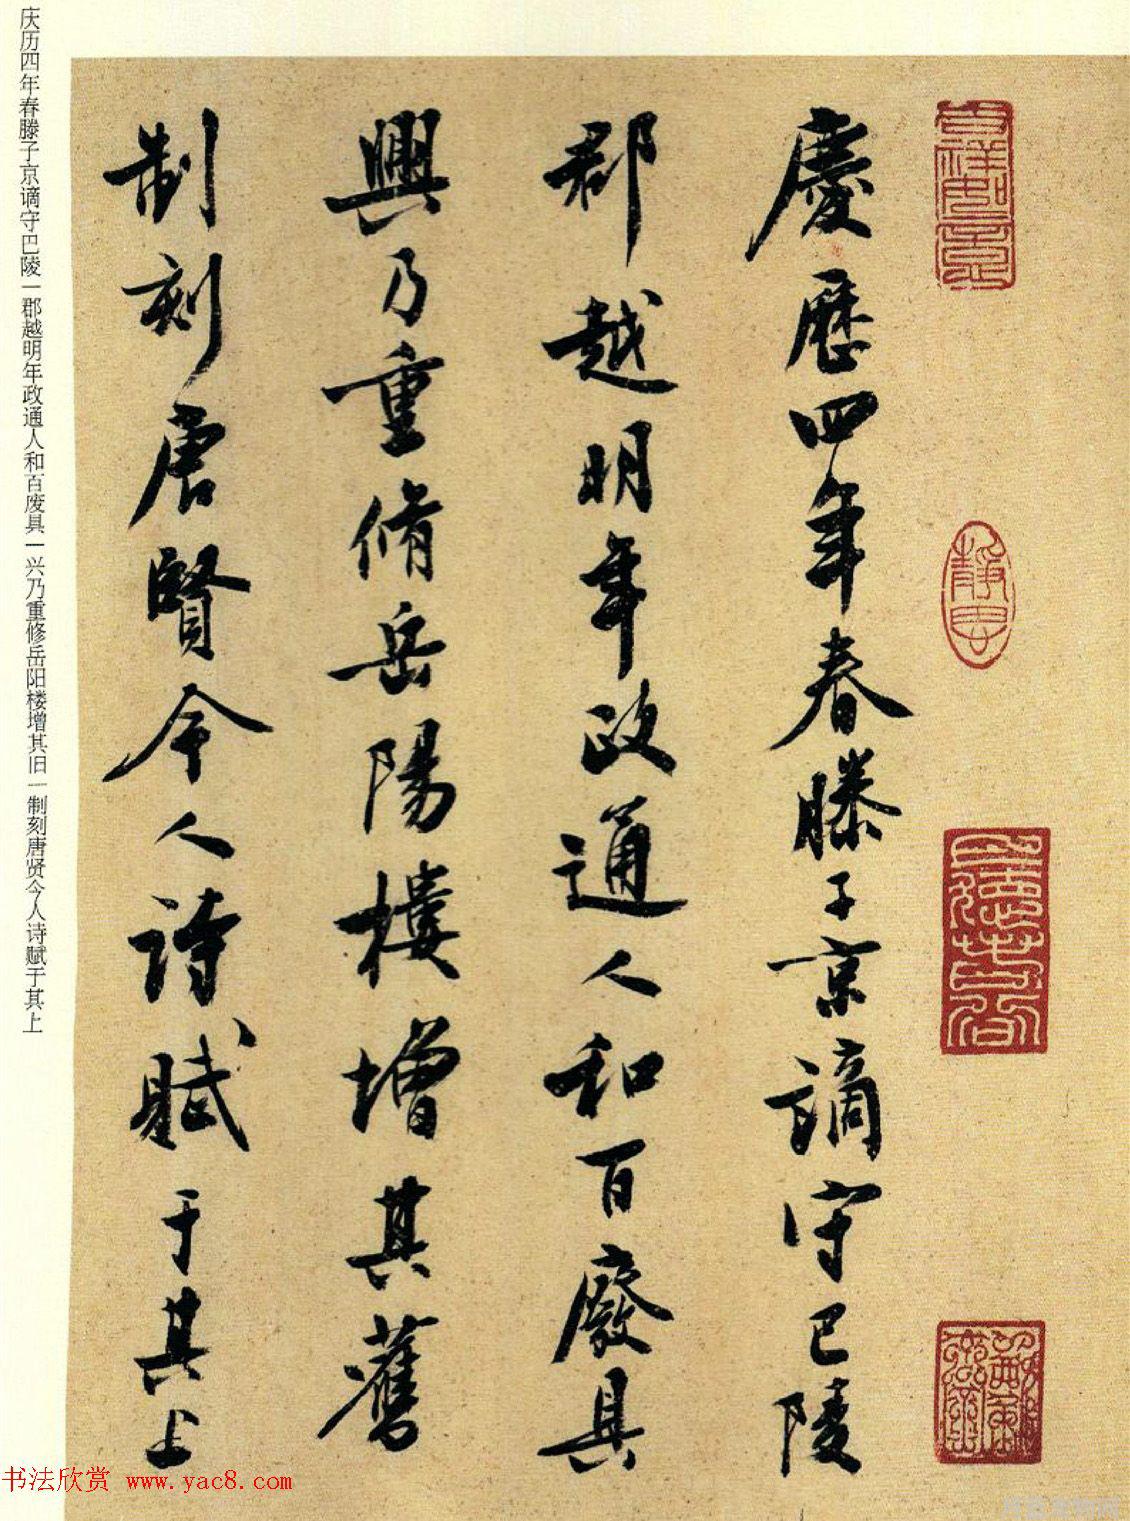 慶歷四年春滕子京謫守巴陵
郡越明年政通人和百廢具
興乃重脩岳陽樓增其舊
制刻唐賢今人詩賦于其上
庆历四年春滕子京谪守巴陵一郡越明年政通人和百废具一兴乃重修岳阳楼增其旧一制刻唐贤今人诗赋于其上
书法欣赏 www.yac8.com